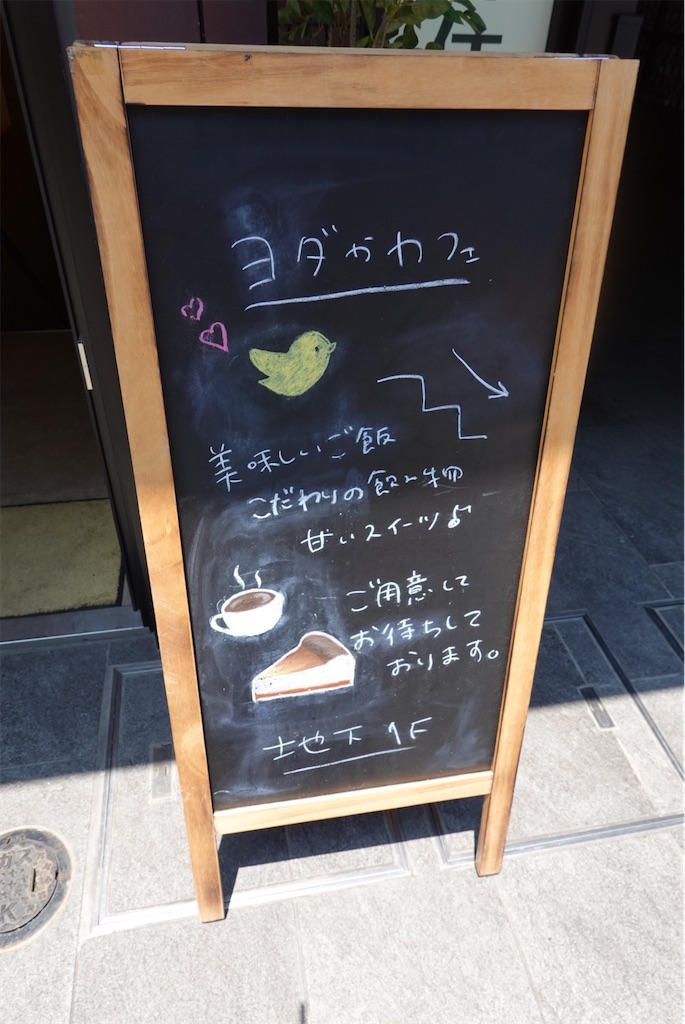 ヨダかわカフェ
美味しいご飯
こだわりの飲み物
甘いスイーツ♪
ご用意して
お待ちして
おります。
地下1F